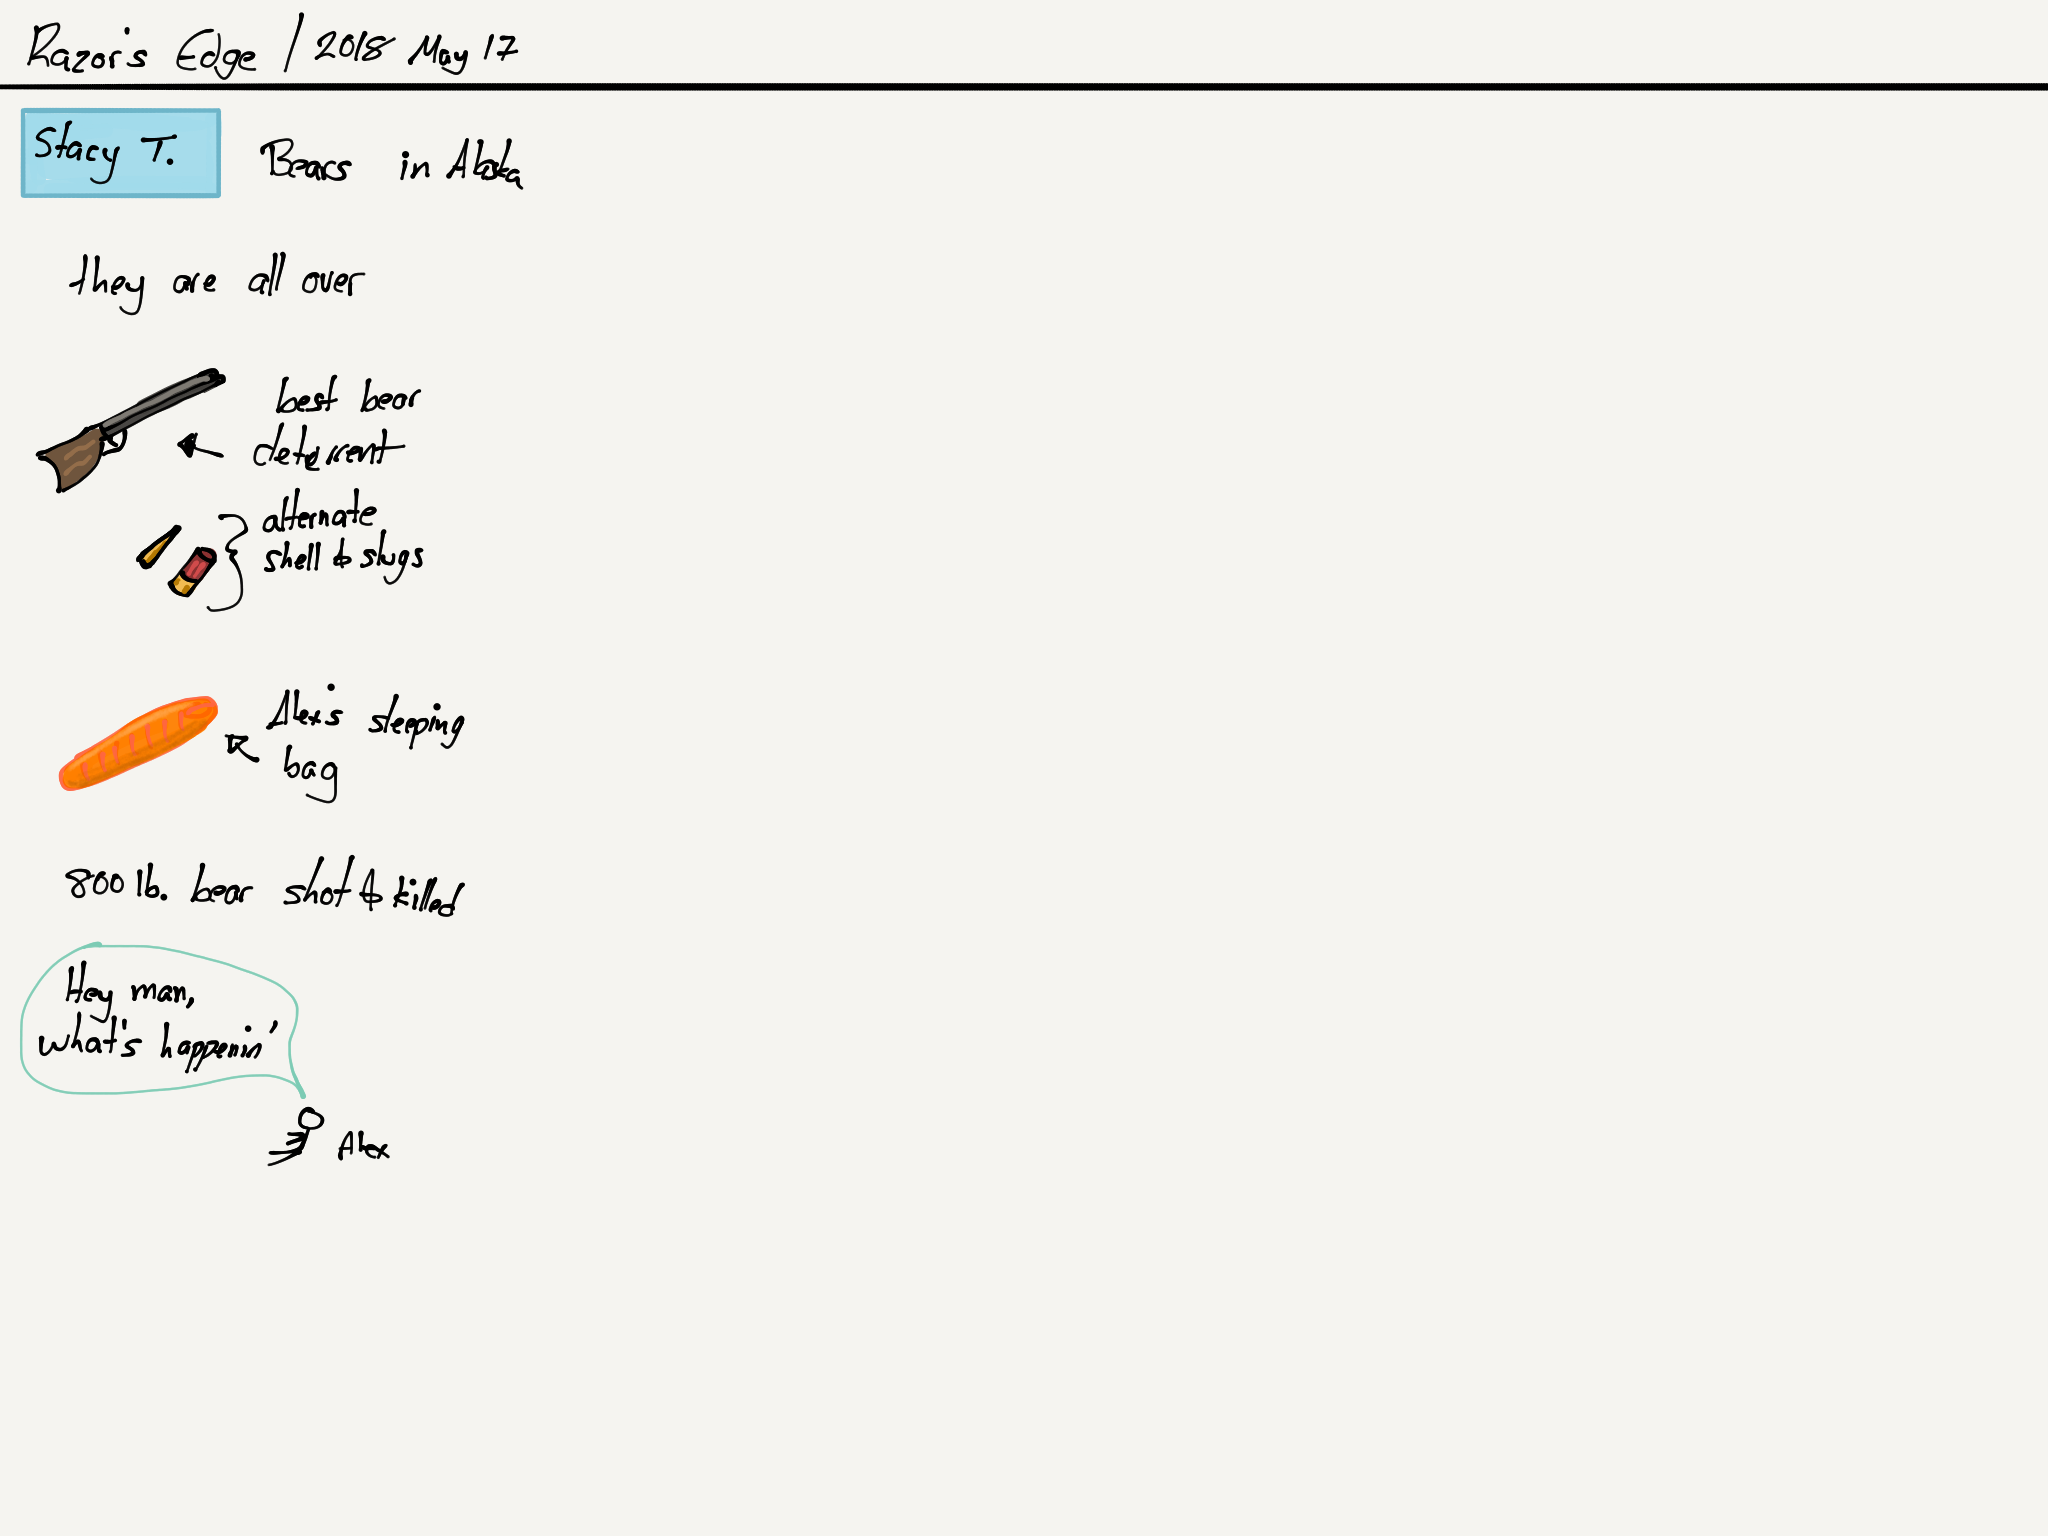 Razor's Edge / 2018 May 17
Stacy T. Bears in Alaska
they are all over
best bear
deterrent
alternate
shell & slugs
Alex's sleeping
bag
800 lb. bear shot & killed
Hey man,
what's happenin'
Alex